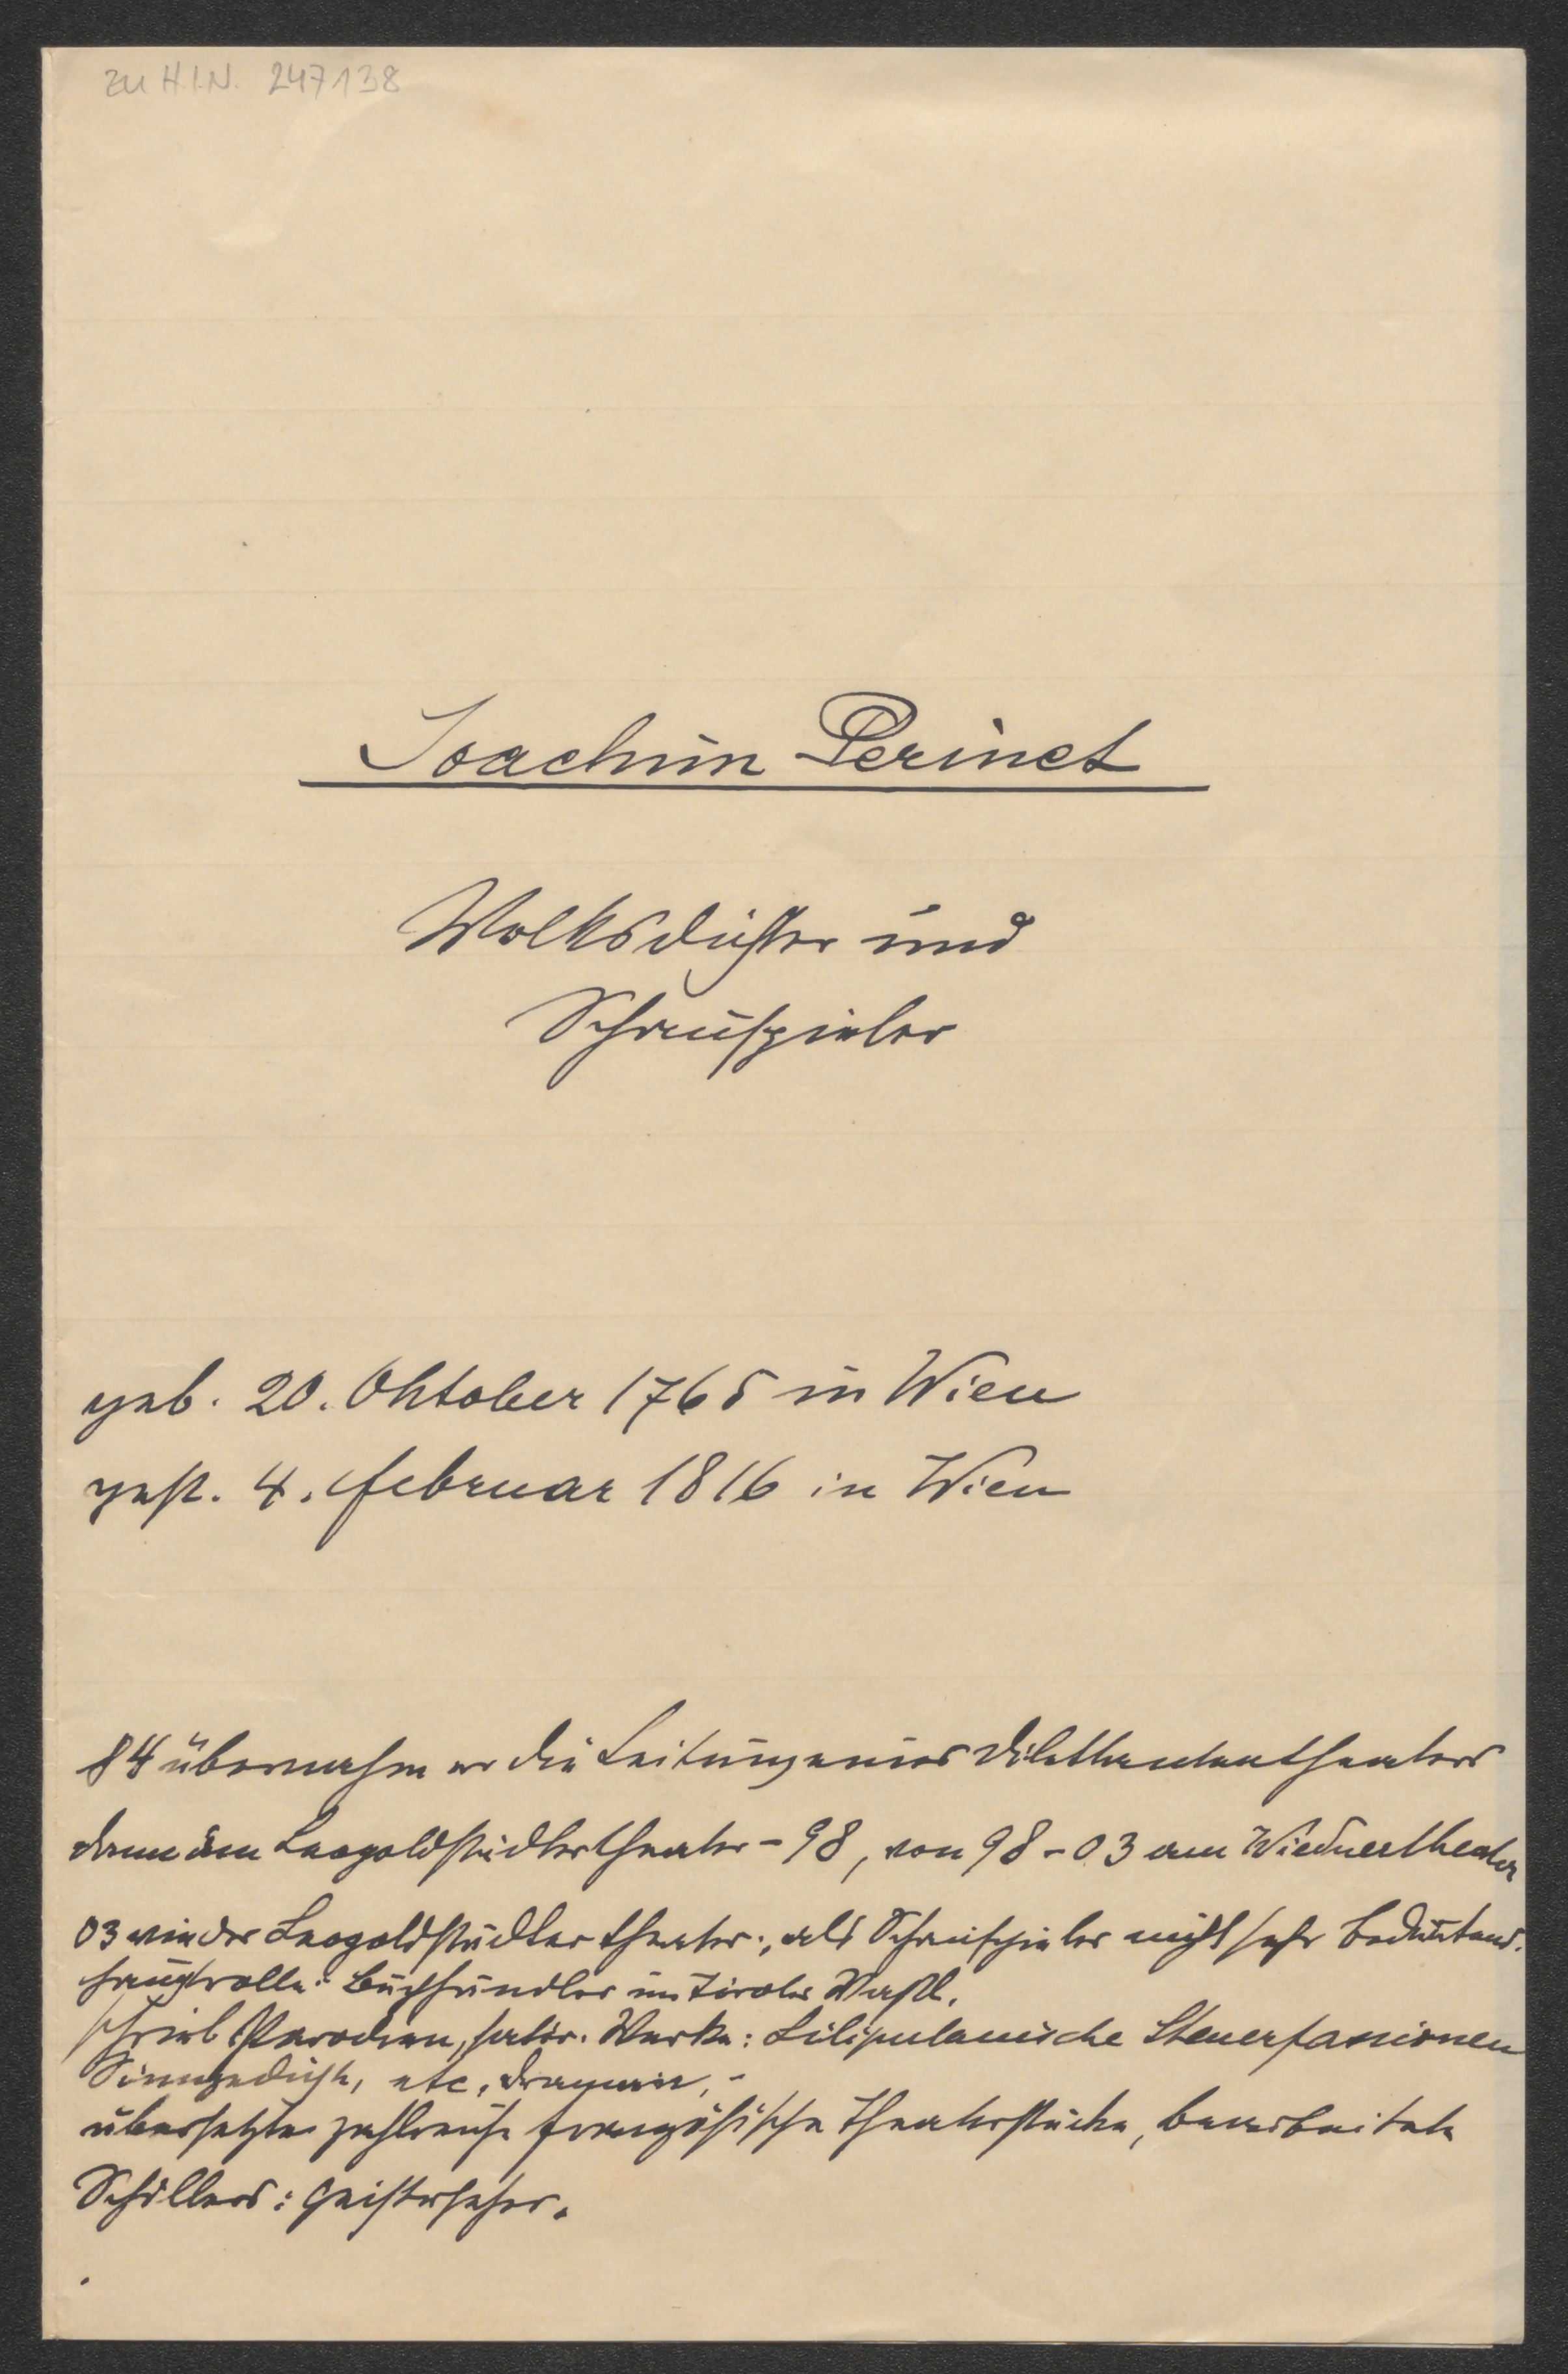 zu H.I.N. 247138
Joachim Perinet
Volksdichter und
Schauspieler
geb. 20. Oktober 1765 in Wien
gest. 4. Februar 1816 in Wien
84 übernahm er die Leitung eines Dilettantentheaters
dann am Leopoldstädtertheater - 98, von 98 - 03 am Wiednertheater
03 wieder Leopoldstädter theater., als Schauspieler nicht sehr bedeutend.
Hauptrolle: Buchhändler im Tiroler Wastl.
schrieb Parodien, satir. Werke: Liliputanische Steuerfassionen
Sinngedichte, etc,
übersetzte zahlreiche französische Theaterstücke, bearbeitete
Schillers: Geisterseher.